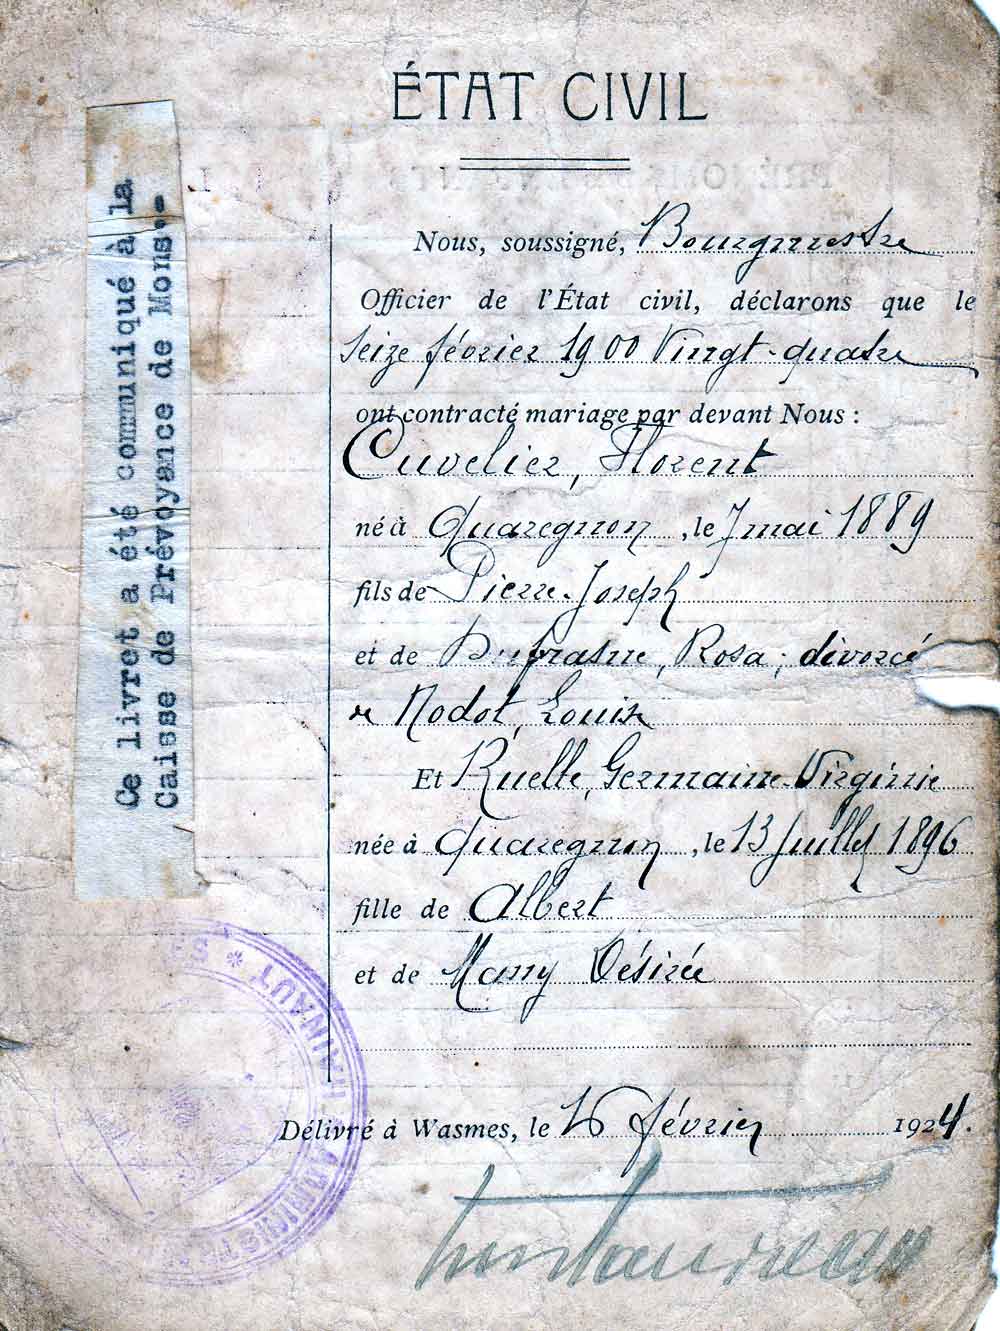 ÉTAT CIVIL
Ce livret a été communiqué à la
Caisse de Prévoyance de Mons.-
Nous, soussigné, Bourgmestre
Officier de l'État civil, déclarons que le
Seize février 1900 Vingt-quatre
ont contracté mariage par devant Nous :
Cuvelier, Florent
né à Quaregnon, le 7 mai 1889
fils de Pierre-Joseph
et de Dufrasne, Rosa, divorcé
de Nodot, Louise
Et Ruelle, Germaine-Virginie
née à Quaregnon, le 13 Juillet 1896
fille de Albert
et de Mary Désirée
HAINAUT * ADMINISTR
Délivré à Wasmes, le 16 février 1924.